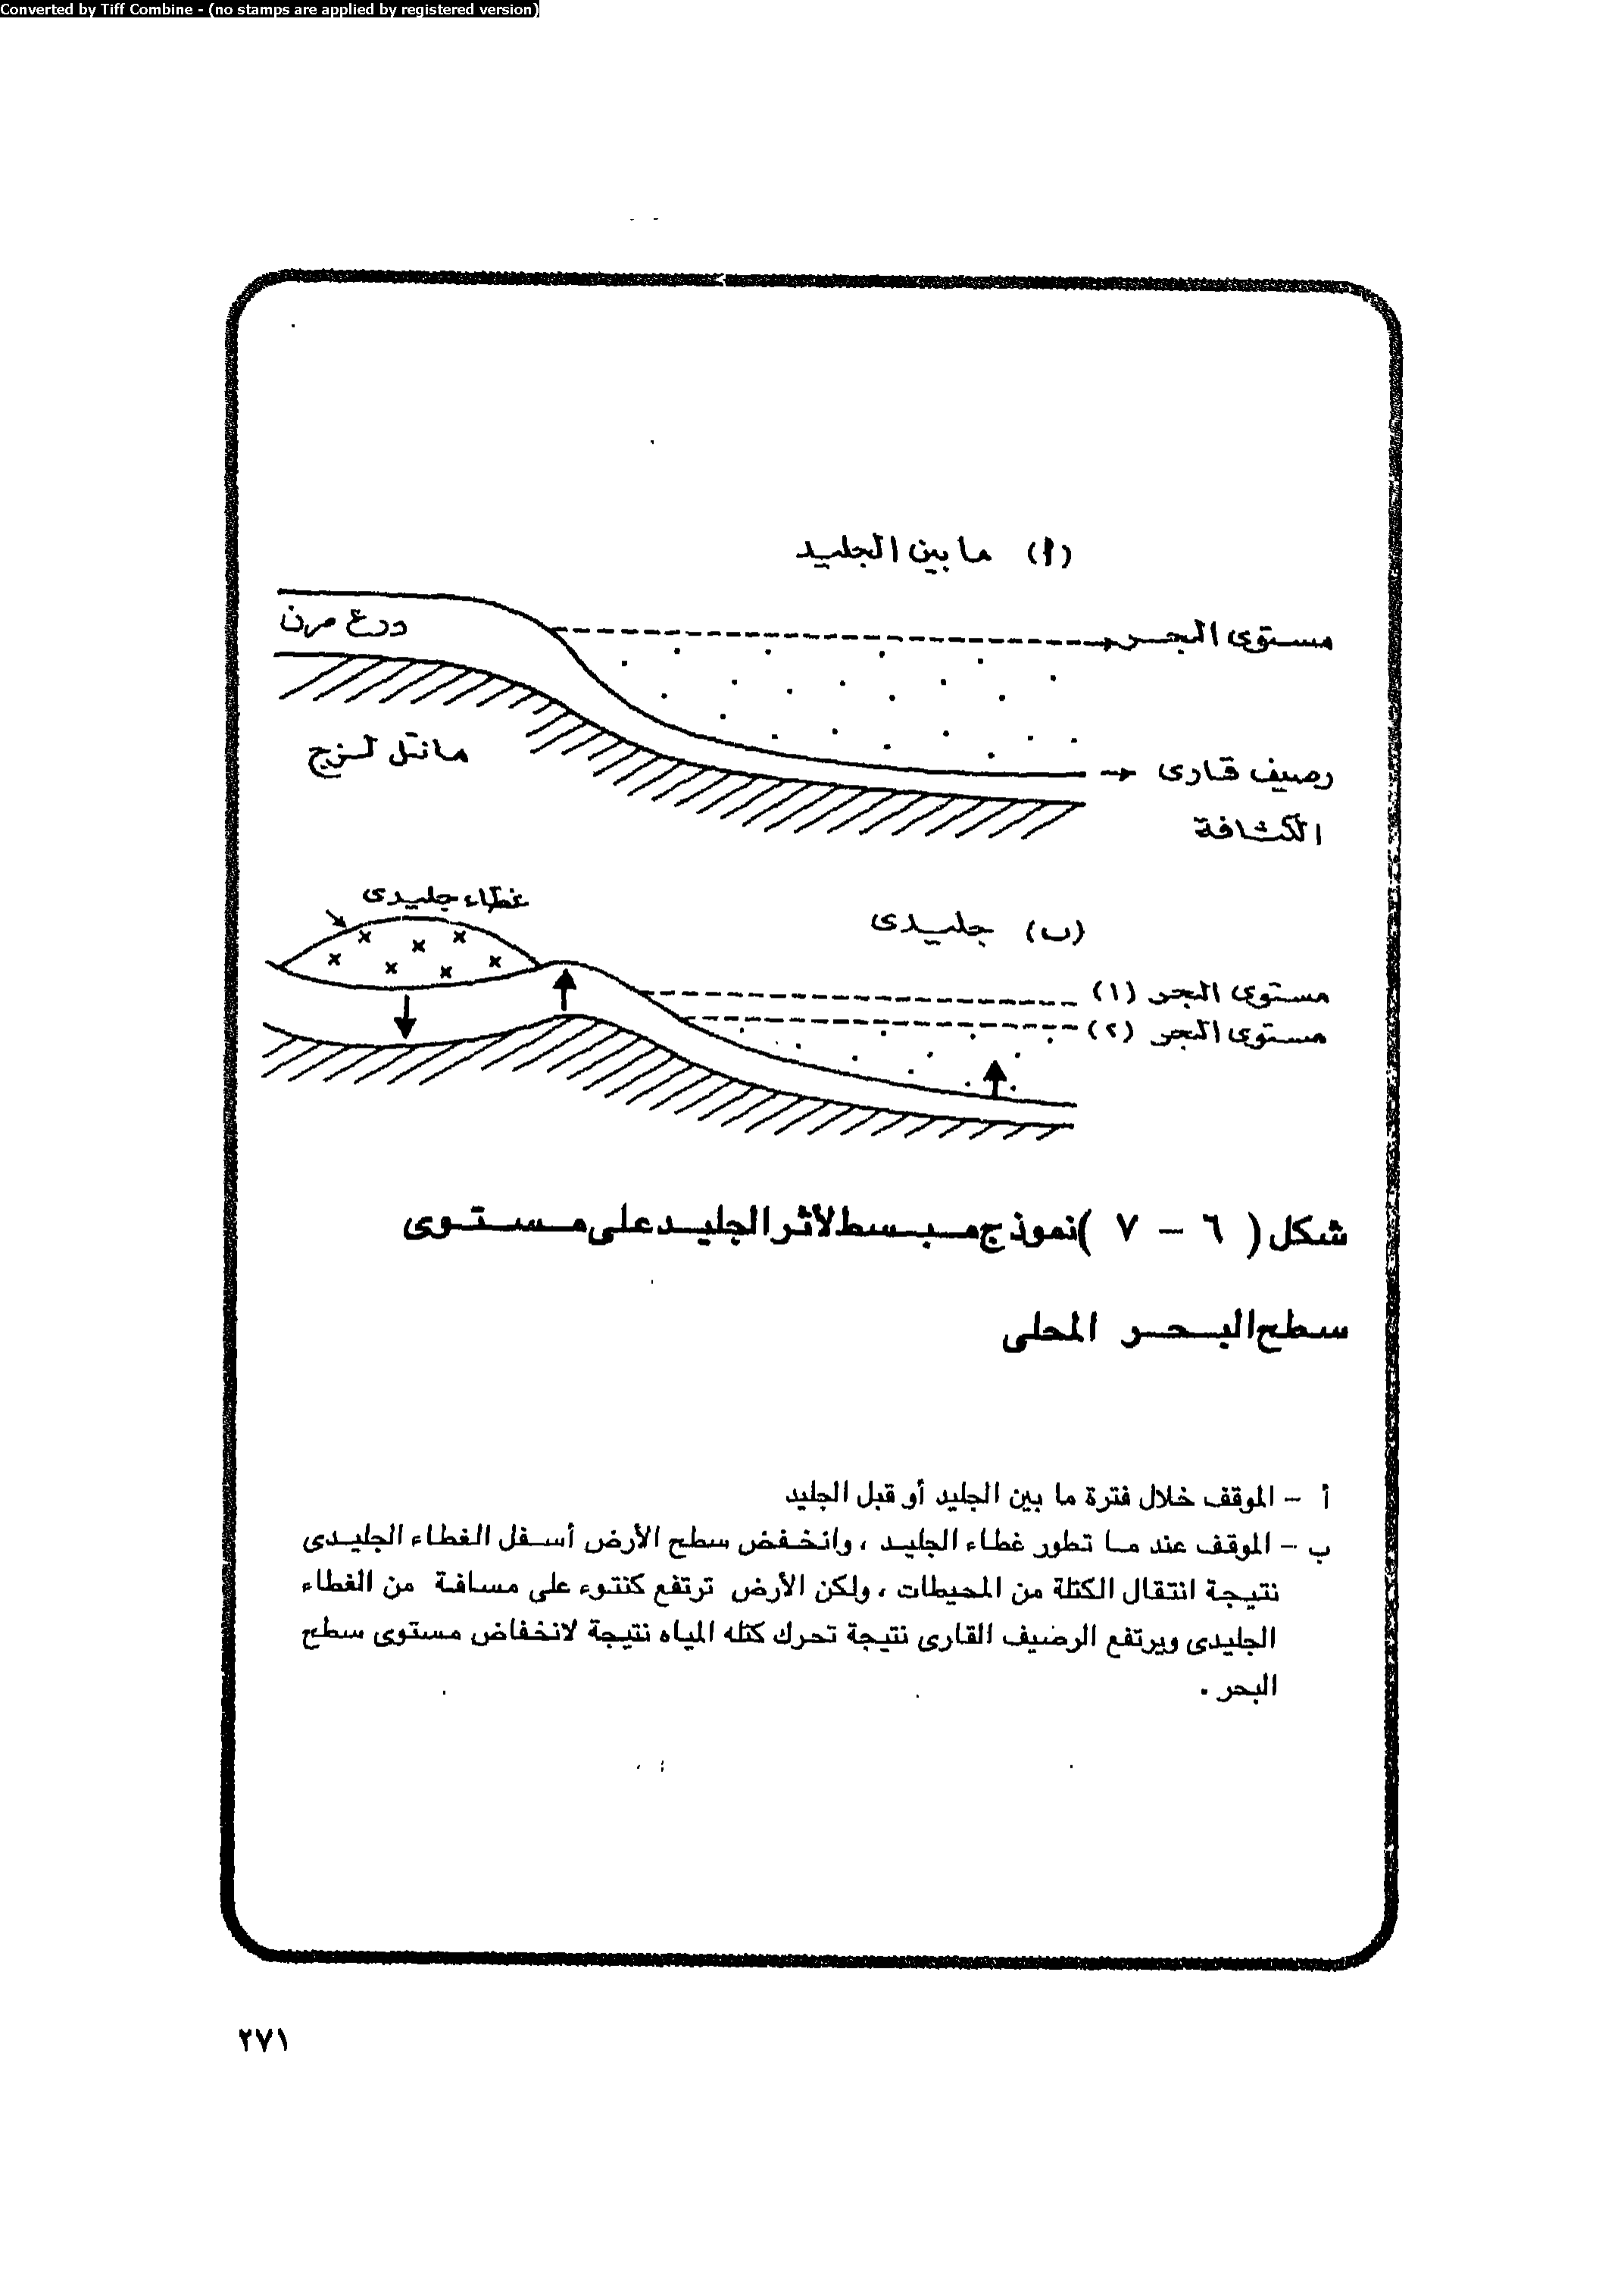 Converted by Tiff Combine - (no stamps are applied by registered version)
(أ) ما بين الجليد
مستوى البحر
درع مرن
مانتل لزج
رصيف قارى
الكثافة
غطاء جليدى
(ب) جليدى
مستوى البحر (١)
مستوى البحر (٢)
شكل ( ٦ - ٧ ) نموذج مبسط لأثر الجليد على مستوى
سطح البحر المحلى
أ - الموقف خلال فترة ما بين الجليد أو قبل الجليد
ب - الموقف عند ما تطور غطاء الجليد ، وانخفض سطح الأرض أسفل الغطاء الجليدى
نتيجة انتقال الكتلة من المحيطات ، ولكن الأرض ترتفع كنتوء على مسافة من الغطاء
الجليدى ويرتفع الرضيف القارى نتيجة تحرك كتله المياه نتيجة لانخفاض مستوى سطح
البحر .
٢٧١